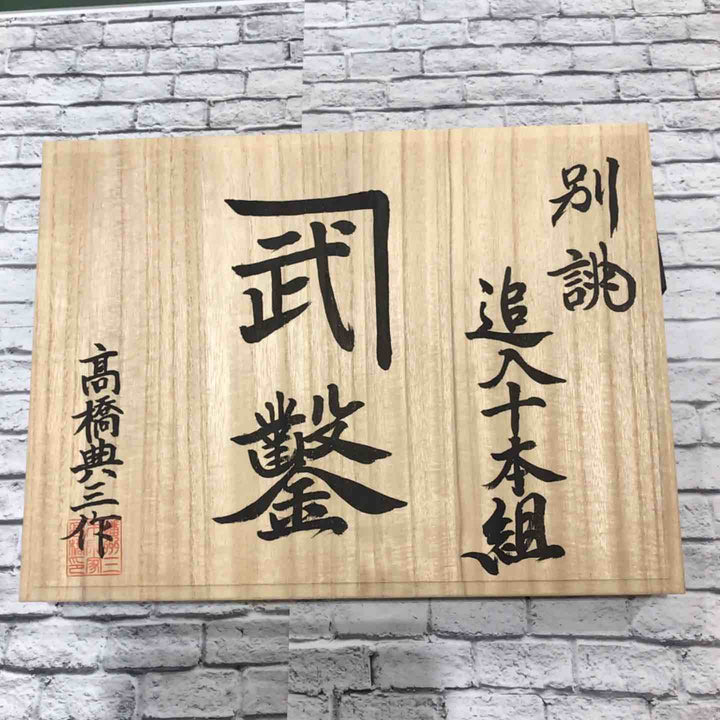 別誂
追入十本組
武
鑿
高橋典三作